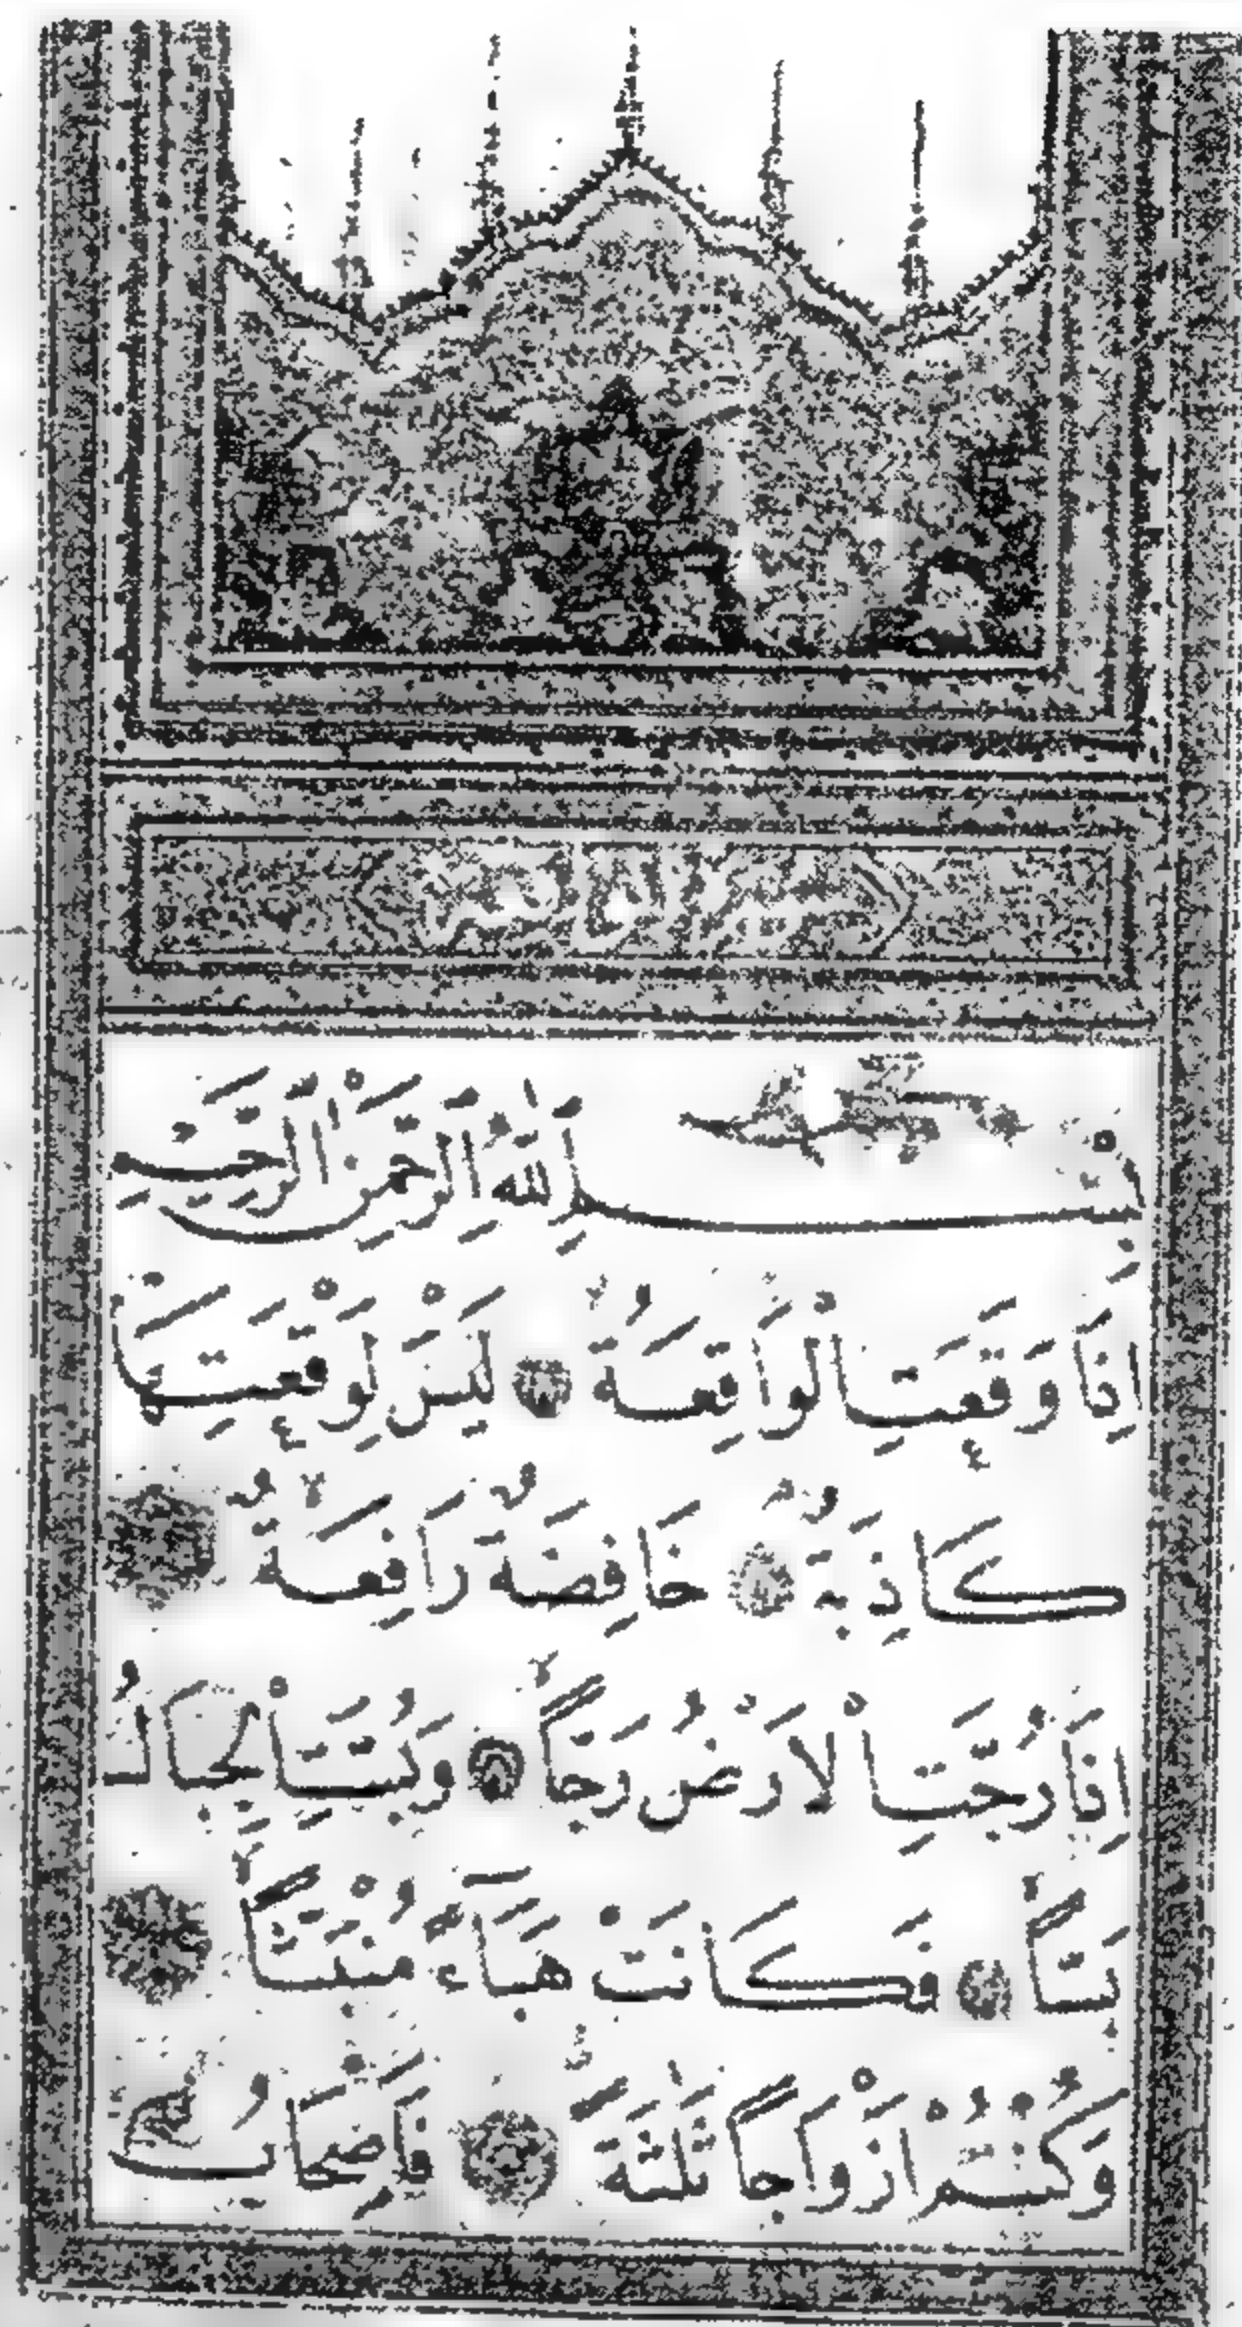 بِسْمِ اللّٰهِ الرَّحْمٰنِ الرَّحِيْمِ
اِذَا وَقَعَتِ الْوَاقِعَةُ لَيْسَ لِوَقْعَتِهَا
كَاذِبَةٌ خَافِضَةٌ رَافِعَةٌ
اِذَا رُجَّتِ الْاَرْضُ رَجًّا وَبُسَّتِ الْجِبَالُ
بَسًّا فَكَانَتْ هَبَاءً مُنْبَثًّا
وَكُنْتُمْ اَزْوَاجًا ثَلٰثَةً فَاَصْحَابُ